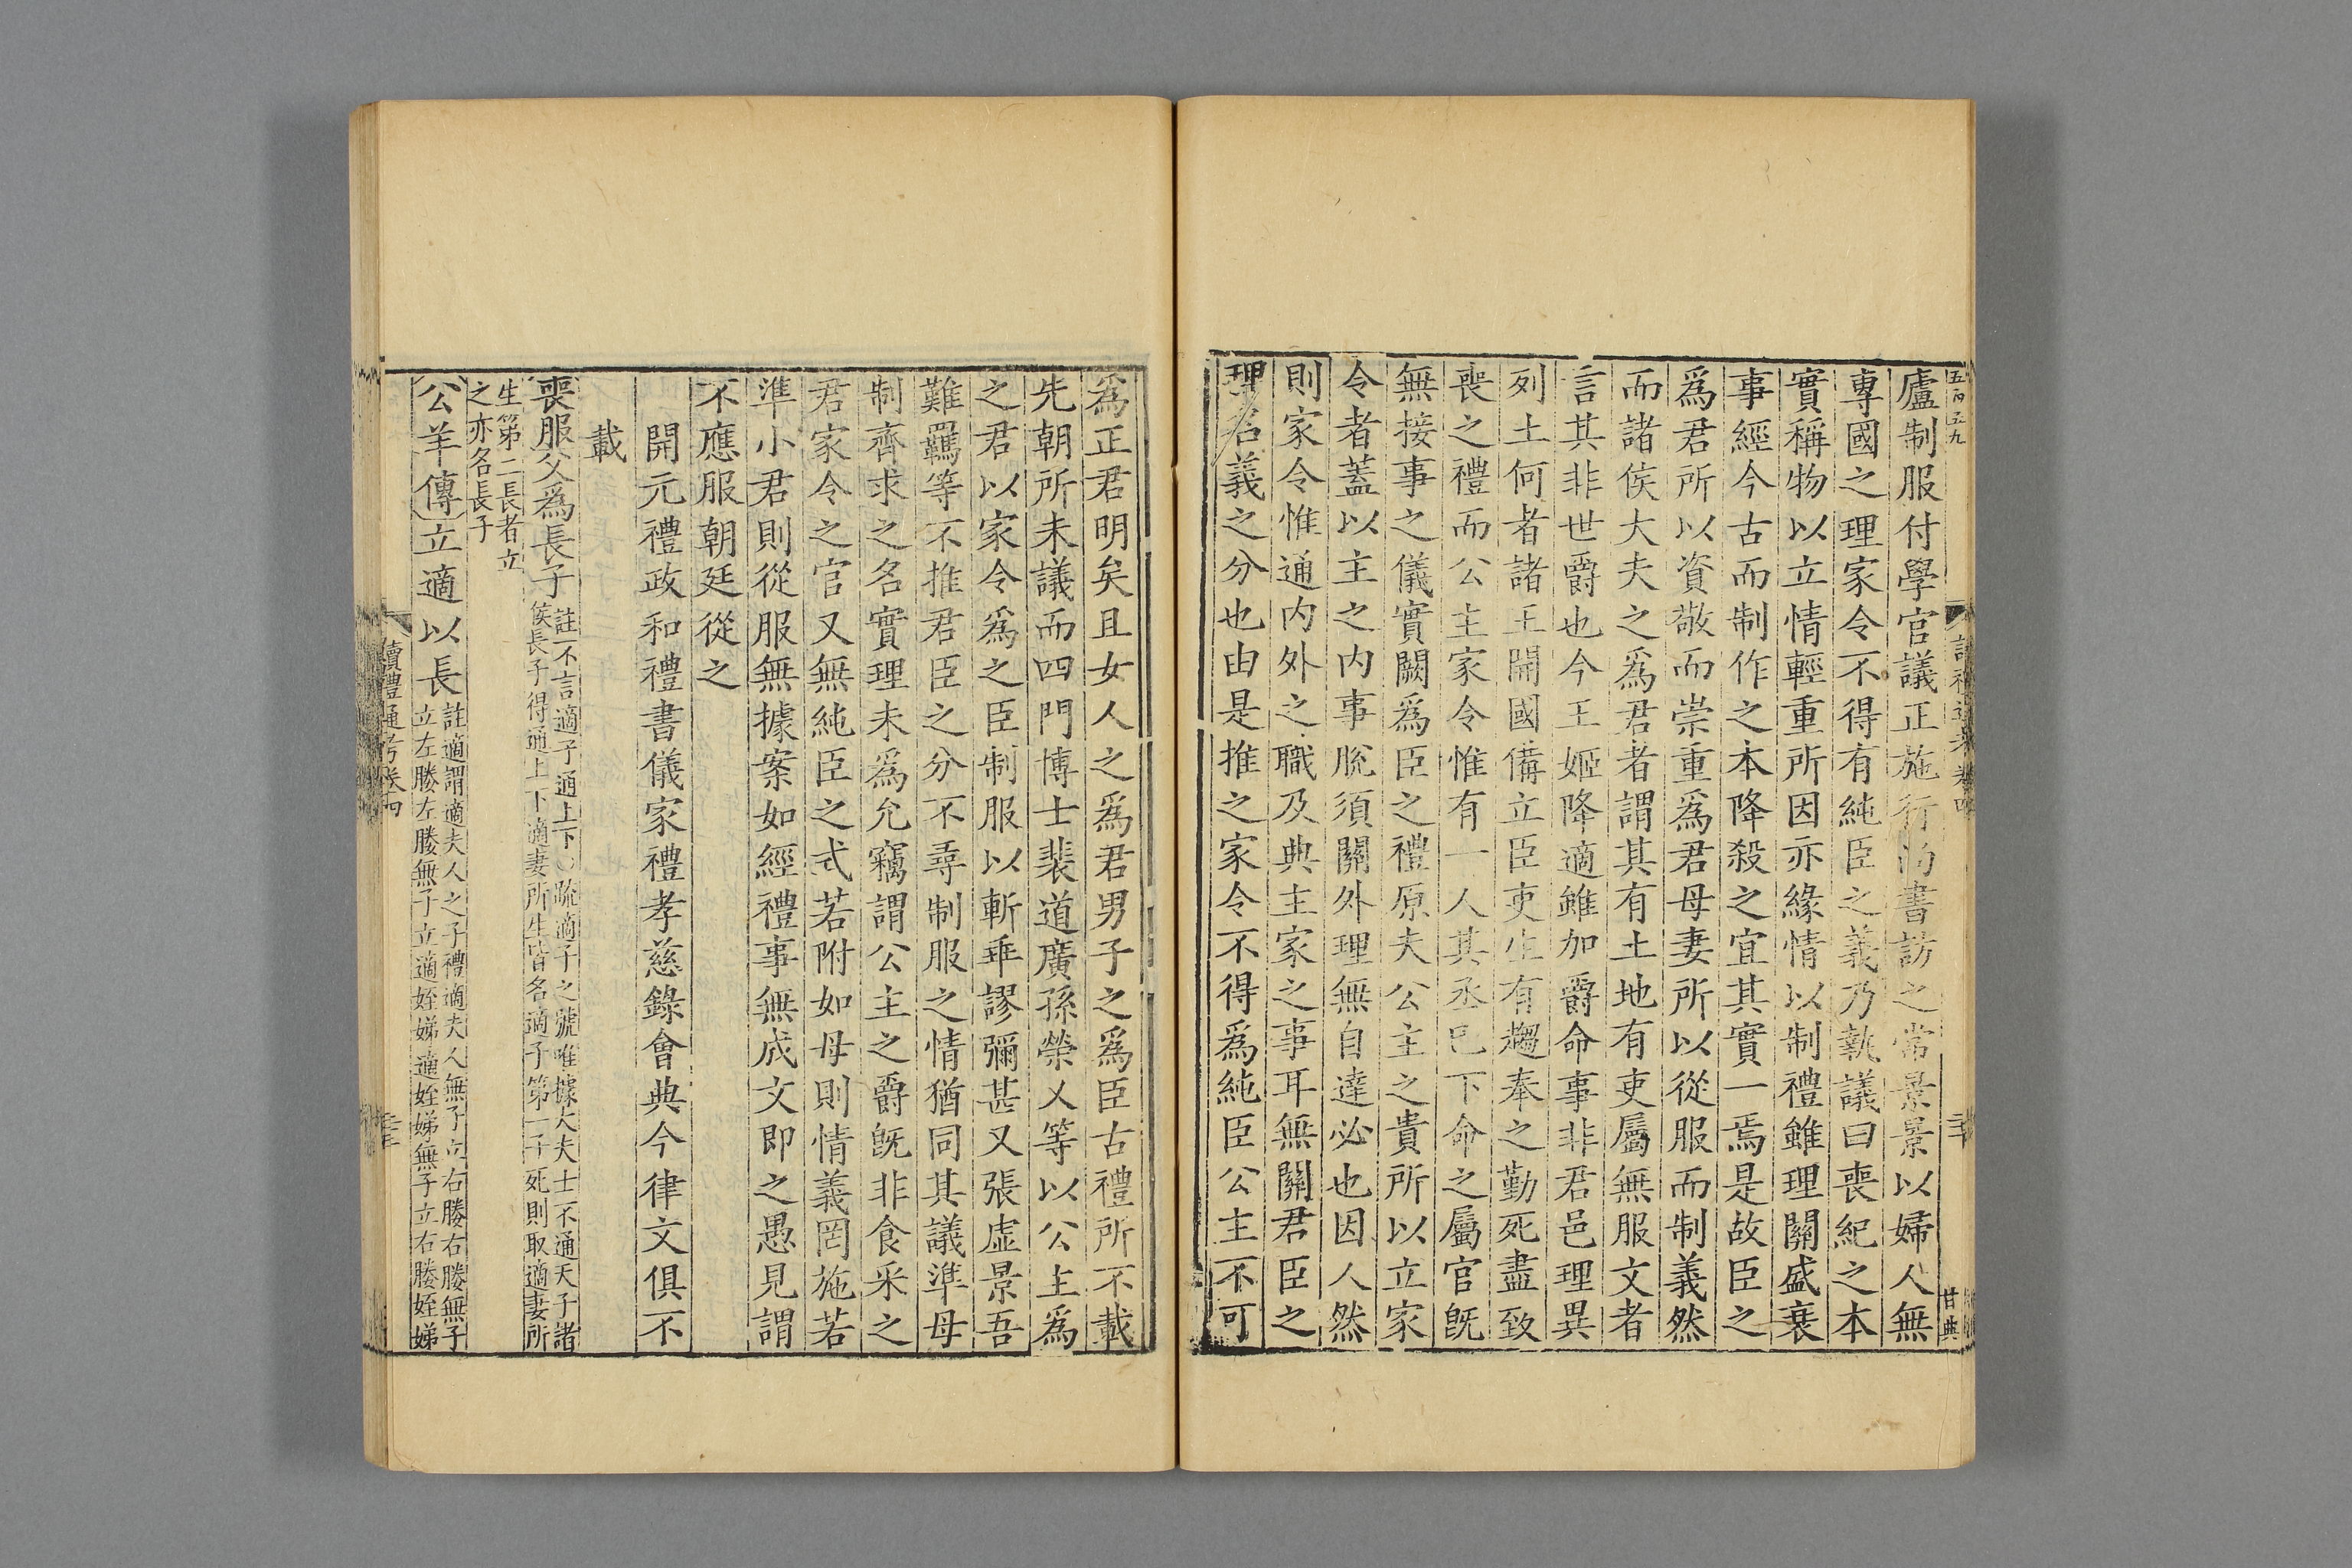 五百五九
盧制服付學官議正施行尚書訪之常景景以婦人無
專國之理家令不得有純臣之義乃執議曰喪紀之本
實稱物以立情輕重所因亦緣情以制禮雖理關盛衰
事經今古而制作之本降殺之宜其實一焉是故臣之
爲君所以資敬而崇重爲君母妻所以從服而制義然
而諸侯大夫之爲君者謂其有土地有吏屬無服文者
言其非世爵也今王姬降適雖加爵命事非君邑理異
列土何者諸王開國備立臣吏生有趨奉之勤死盡致
喪之禮而公主家令惟有一人其丞已下命之屬官旣
無接事之儀實闕爲臣之禮原夫公主之貴所以立家
令者蓋以主之内事脫須關外理無自達必也因人然
則家令惟通内外之職及典主家之事耳無關君臣之
理名義之分也由是推之家令不得爲純臣公主不可
爲正君明矣且女人之爲君男子之爲臣古禮所不載
先朝所未議而四門博士裴道廣孫榮乂等以公主爲
之君以家令爲之臣制服以斬乖謬彌甚又張虛景吾
難羈等不推君臣之分不尋制服之情猶同其議準母
制齊求之名實理未爲允竊謂公主之爵旣非食采之
君家令之官又無純臣之式若附如母則情義罔施若
準小君則從服無據案如經禮事無成文即之愚見謂
不應服朝廷從之
開元禮政和禮書儀家禮孝慈錄會典今律文俱不
載
喪服父爲長子
註不言適子通上下○疏適子之號唯據大夫士不通天子諸
侯長子得通上下適妻所生皆名適子第一子死則取適妻所
生第二長者立
之亦名長子
公羊傳立適以長
註適謂適夫人之子禮適夫人無子立右媵右媵無子
立左媵左媵無子立適姪娣適姪娣無子立右媵姪娣
讀禮通考卷四